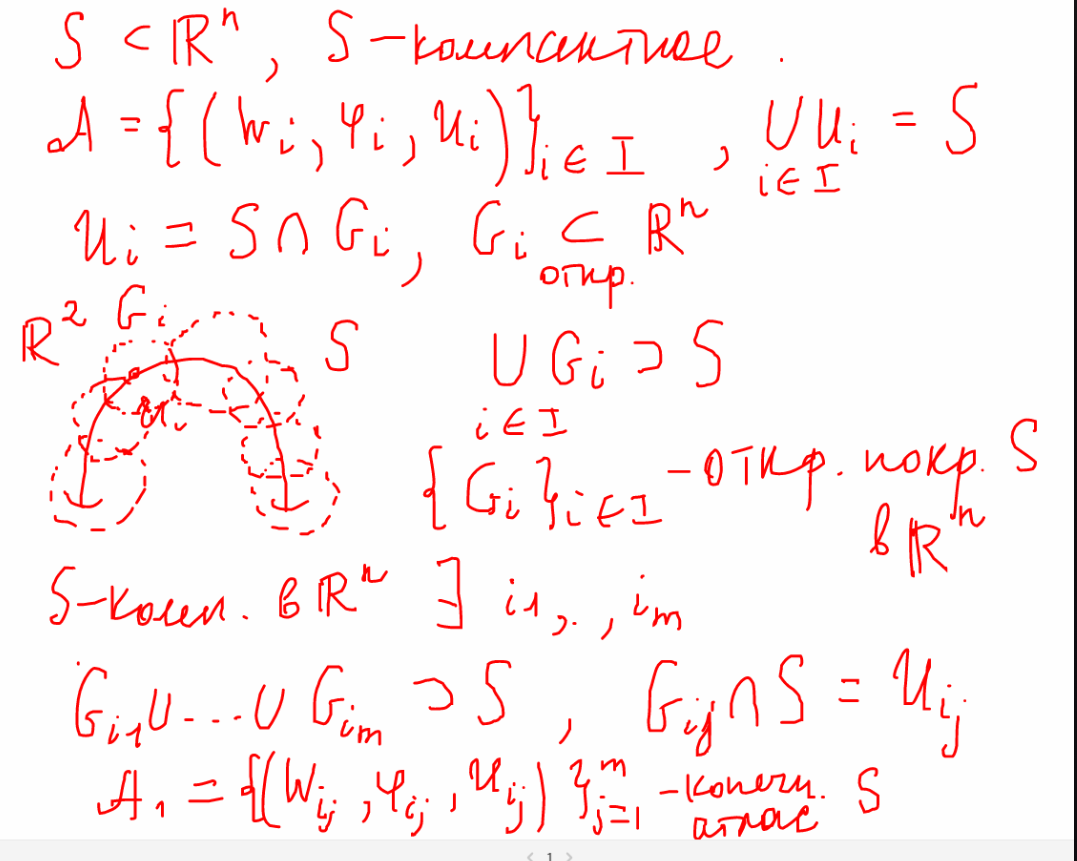 S ⊂ ℝⁿ, S – компактное.
A = {(Wᵢ, φᵢ, Uᵢ)}ᵢ∈I, ∪ᵢ∈I Uᵢ = S
Uᵢ = S ∩ Gᵢ, Gᵢ ⊂ откр. ℝⁿ
ℝ² Gᵢ S Uᵢ
∪ᵢ∈I Gᵢ ⊃ S
{Gᵢ}ᵢ∈I – откр. покр. S
в ℝⁿ
S – комп. в ℝⁿ ∃ i₁, .., iₘ
G_{i₁} ∪ ... ∪ G_{iₘ} ⊃ S, G_{iⱼ} ∩ S = U_{iⱼ}
A₁ = {(W_{iⱼ}, φ_{iⱼ}, U_{iⱼ})}ⱼ₌₁ᵐ – конечн. атлас S
1